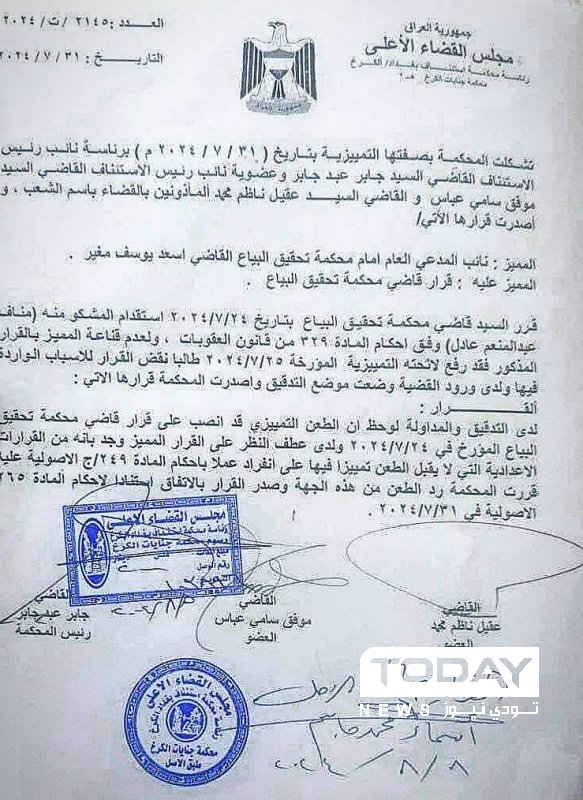 جمهورية العراق
مجلس القضاء الأعلى
رئاسة محكمة استئناف بغداد/ الكرخ
محكمة جنايات الكرخ / هـ٢
العدد : ٢١٤٥/ ت/ ٢٠٢٤
التاريخ : ٣١ / ٧ / ٢٠٢٤
تشكلت المحكمة بصفتها التمييزية بتاريخ ( ٣١ / ٧ / ٢٠٢٤ م ) برئاسة نائب رئيس
الاستئناف القاضي السيد جابر عبد جابر وعضوية نائب رئيس الاستئناف القاضي السيد
موفق سامي عباس و القاضي السيد عقيل ناظم محمد المأذونين بالقضاء باسم الشعب ، و
أصدرت قرارها الأتي/
المميز : نائب المدعي العام امام محكمة تحقيق البياع القاضي اسعد يوسف مغير .
المميز عليه : قرار قاضي محكمة تحقيق البياع .
قرر السيد قاضي محكمة تحقيق البياع بتاريخ ٢٠٢٤/٧/٢٤ استقدام المشكو منه (مناف
عبدالمنعم عادل) وفق احكام المادة ٣٢٩ من قانون العقوبات ، ولعدم قناعة المميز بالقرار
المذكور فقد رفع لائحته التمييزية المؤرخة ٢٠٢٤/٧/٢٥ طالبا نقض القرار للاسباب الواردة
فيها ولدى ورود القضية وضعت موضع التدقيق واصدرت المحكمة قرارها الاتي :
القـــــــرار :
لدى التدقيق والمداولة لوحظ ان الطعن التمييزي قد انصب على قرار قاضي محكمة تحقيق
البياع المؤرخ في ٢٠٢٤/٧/٢٤ ولدى عطف النظر على القرار المميز وجد بانه من القرارات
الاعدادية التي لا يقبل الطعن تمييزا فيها على انفراد عملا باحكام المادة ٢٤٩/ج الاصولية عليه
قررت المحكمة رد الطعن من هذه الجهة وصدر القرار بالاتفاق استنادا لاحكام المادة ٢٦٥
الاصولية في ٢٠٢٤/٧/٣١ .
مجلس القضاء الاعلى
القاضي
عقيل ناظم محمد
العضو
القاضي
موفق سامي عباس
العضو
القاضي
جابر عبد جابر
رئيس المحكمة
مجلس القضاء الاعلى
محكمة جنايات الكرخ
طبق الاصل
TODAY
NEWS تودي نيوز
٨/٨/٢٠٢٤